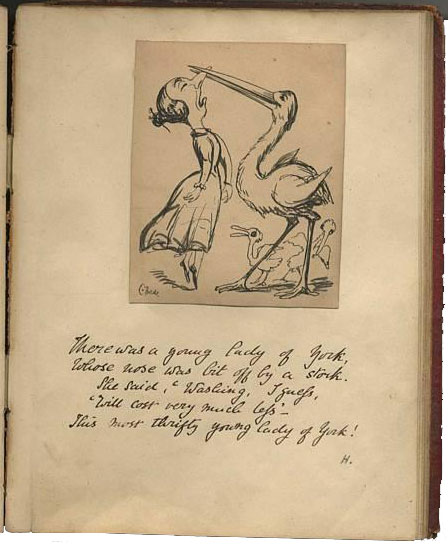 There was a young lady of York,
Whose nose was bit off by a stork.
She said, "Washing, I guess,
"Will cost very much less" –
This most thrifty young lady of York!
H.